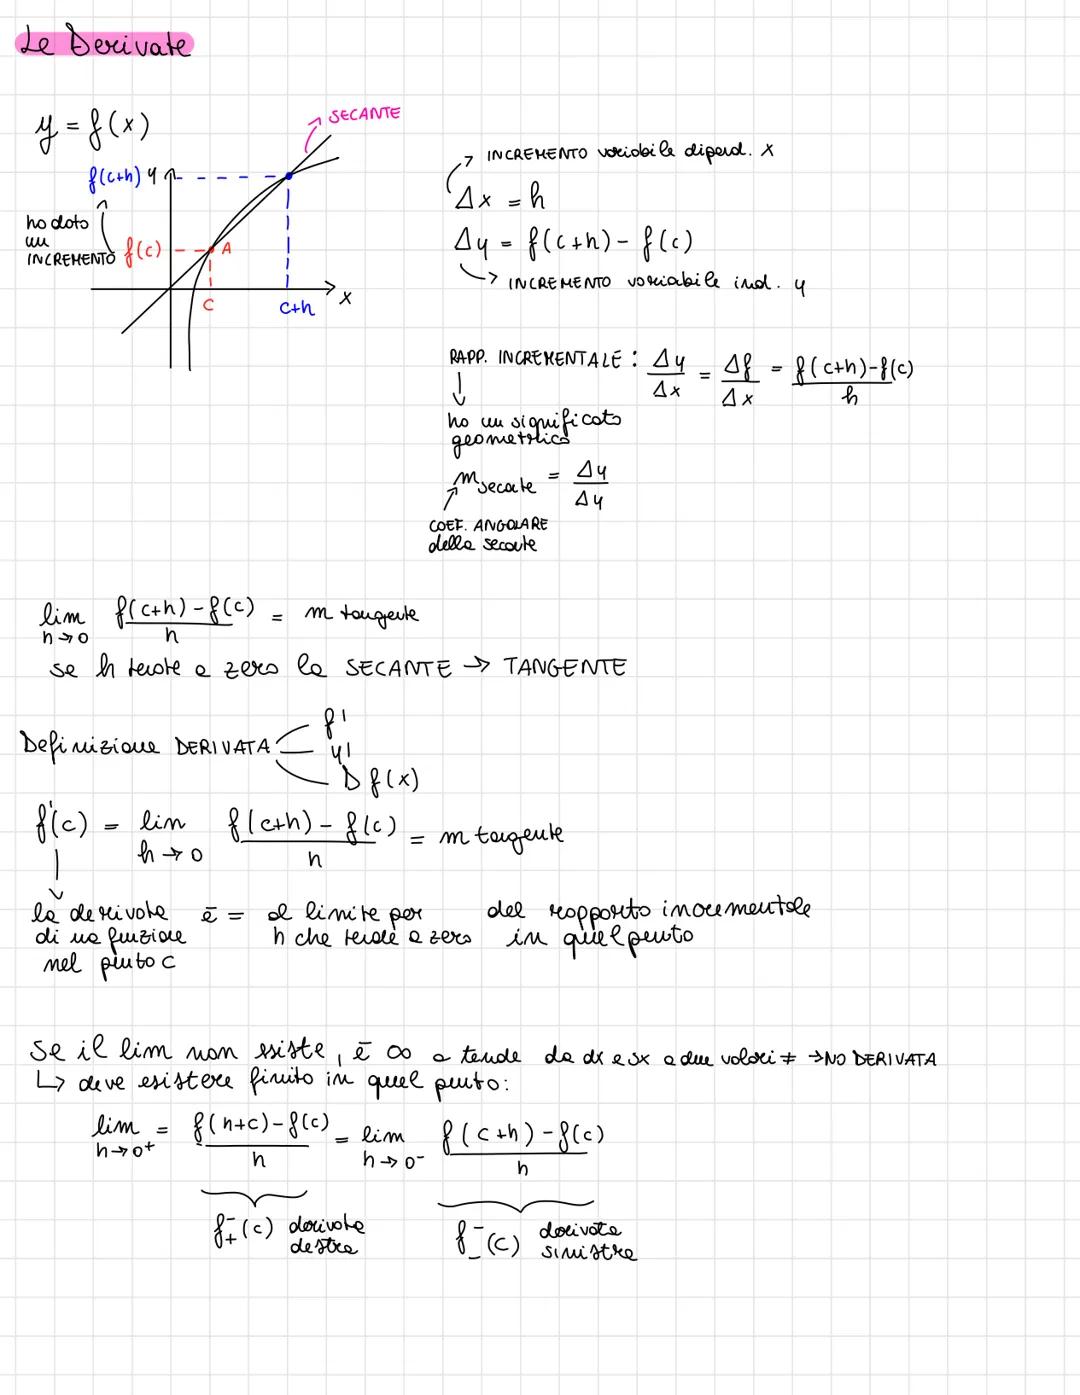 Le Derivate
y = f(x)
SECANTE
f(c+h) y
ho dato
un
INCREMENTO f(c)
A
C
C+h
x
INCREMENTO variabile dipend. x
Δx = h
Δy = f(c+h) - f(c)
INCREMENTO variabile ind. y
RAPP. INCREMENTALE : Δy/Δx = Δf/Δx = f(c+h)-f(c)/h
ha un significato
geometrico
m secante = Δy/Δy
COEF. ANGOLARE
della secante
lim h→0 f(c+h)-f(c)/h = m tangente
se h tende a zero la SECANTE → TANGENTE
Definizione DERIVATA
f'
y'
D f(x)
f'(c) = lim h→0 f(c+h) - f(c)/h = m tangente
la derivata è = al limite per del rapporto incrementale
di una funzione h che tende a zero in quel punto
nel punto c
Se il lim non esiste, è ∞ o tende da dx e sx a due valori ≠ → NO DERIVATA
↳ deve esistere finito in quel punto:
lim h→0+ = f(h+c)-f(c)/h = lim h→0- f(c+h)-f(c)/h
f₊⁻(c) derivata
destra
f₋⁻(c) derivata
sinistra